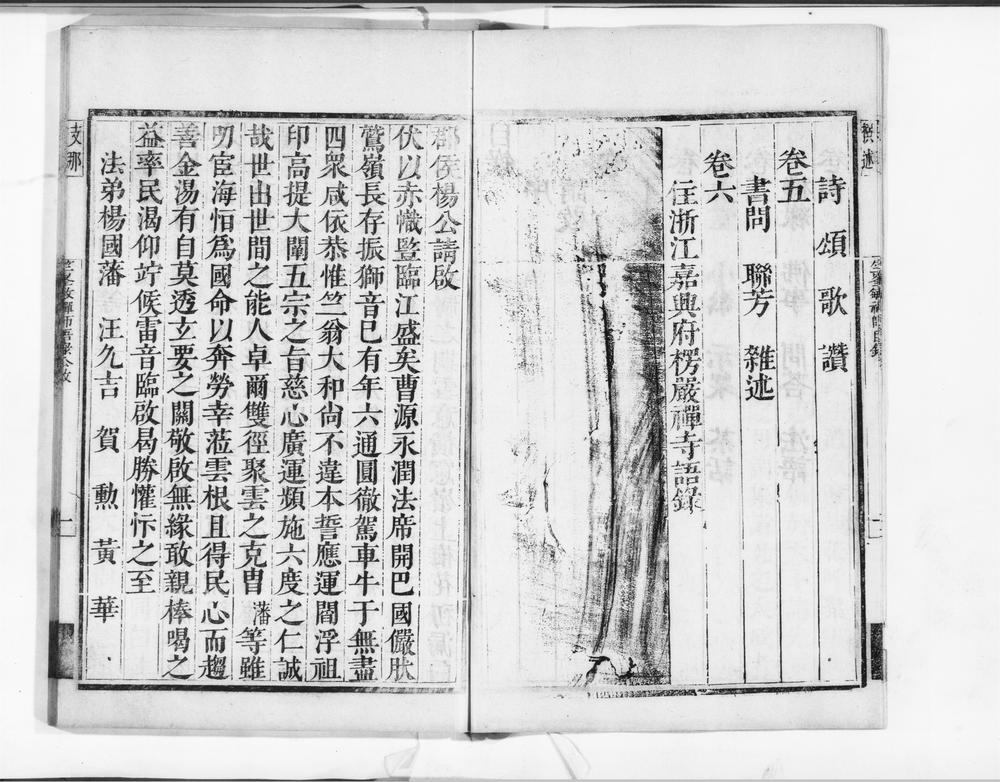 詩 頌 歌 讚
卷五
書問 聯芳 雜述
卷六
住浙江嘉興府楞嚴禪寺語錄
郡侯楊公請啟
伏以赤幟豎臨江盛矣曹源永潤法席開巴國儼肰
鷲嶺長存振獅音巳有年六通圓徹駕車牛于無盡
四衆咸依恭惟竺翁大和尚不違本誓應運閻浮祖
印高提大闡五宗之旨慈心廣運頻施六度之仁誠
哉世出世間之能人卓爾雙徑聚雲之克胄藩等雖
叨宦海怕爲國命以奔勞幸蒞雲根且得民心而趨
善金湯有自莫透玄要之關敬啟無緣敢親棒喝之
益率民渴仰竚候雷音臨啟曷勝懽忭之至
法弟楊國藩 汪允吉 賀勳 黃華
支那
二
二